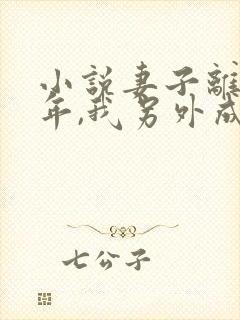 小說妻子離
年,我另外成
七公子